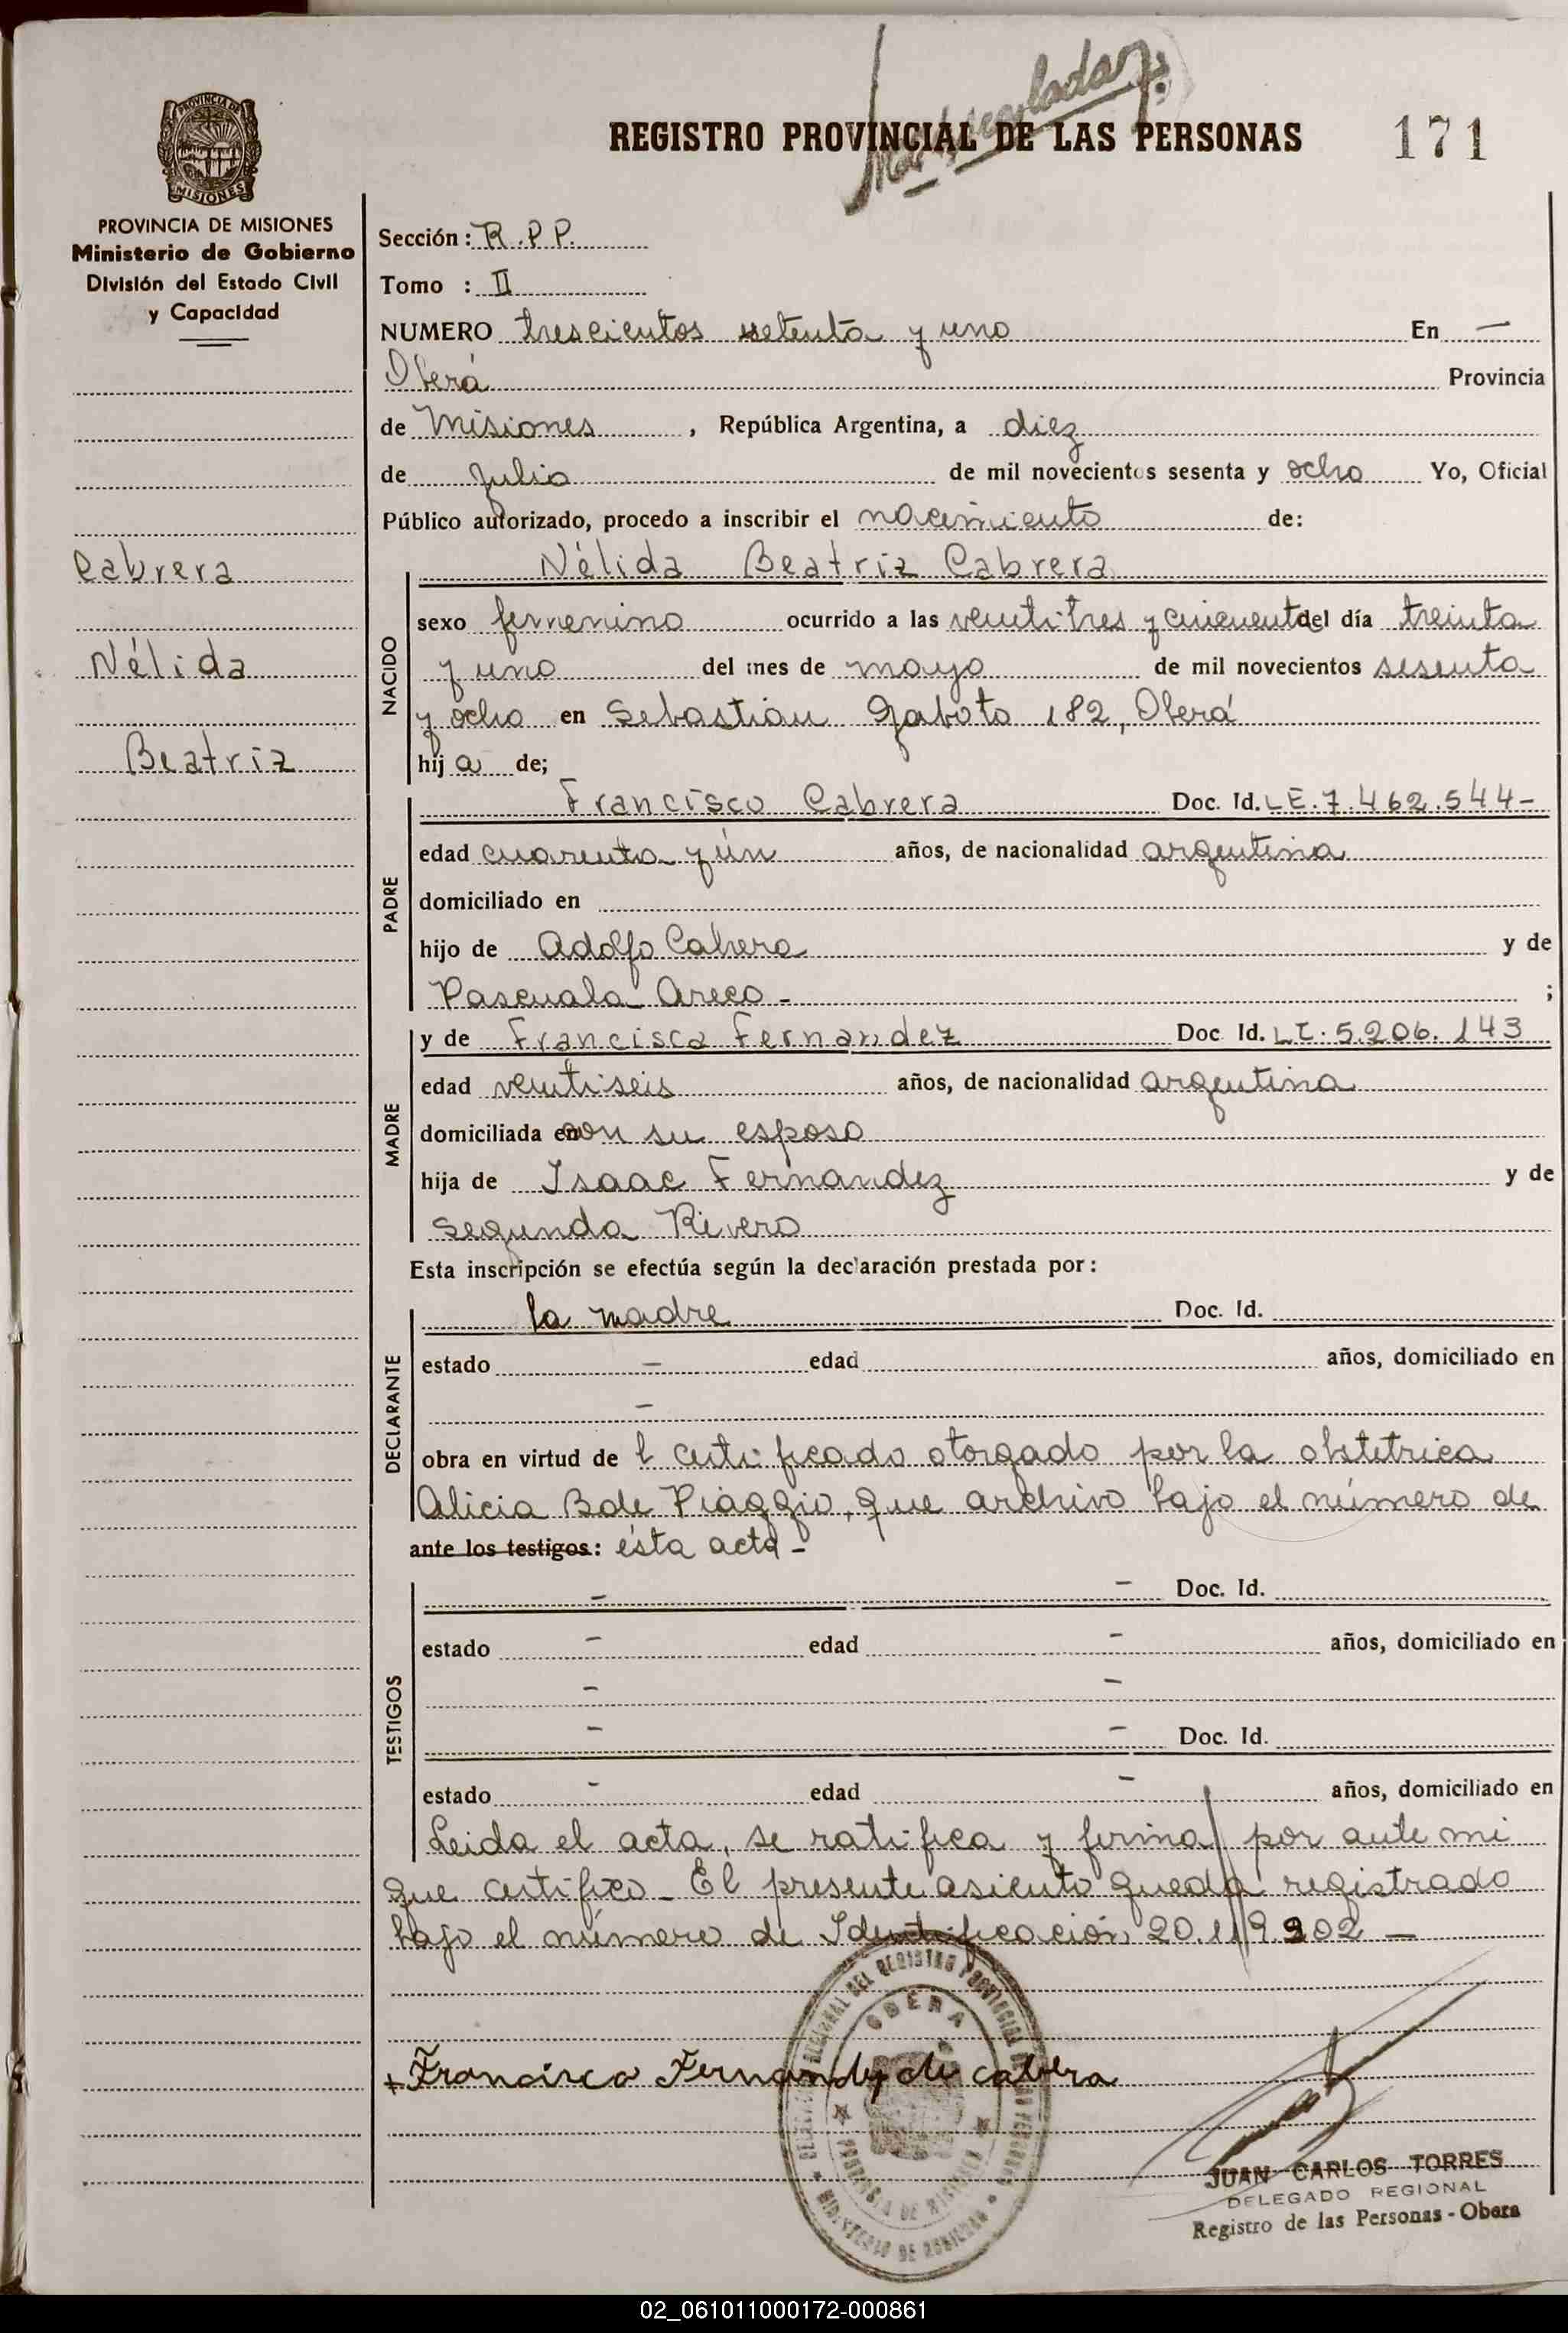 REGISTRO PROVINCIAL DE LAS PERSONAS 171
PROVINCIA DE
MISIONES
PROVINCIA DE MISIONES
Ministerio de Gobierno
División del Estado Civil
y Capacidad
Cabrera
Nélida
Beatriz
Sección: R.P.P.
Tomo : II
NUMERO trescientos setenta y uno En —
Oberá Provincia
de Misiones , República Argentina, a diez
de julio de mil novecientos sesenta y ocho Yo, Oficial
Público autorizado, procedo a inscribir el nacimiento de:
NACIDO
Nélida Beatriz Cabrera
sexo femenino ocurrido a las veintitres y cincuenta del día treinta
y uno del mes de mayo de mil novecientos sesenta
y ocho en Sebastián Gaboto 182, Oberá
hij a de;
PADRE
Francisco Cabrera Doc. Id. LE. 7.462.544-
edad cuarenta y ún años, de nacionalidad argentina
domiciliado en
hijo de Adolfo Cabrera y de
Pascuala Areco - ;
MADRE
y de Francisca Fernandez Doc Id. LC. 5.206.143
edad veintiseis años, de nacionalidad argentina
domiciliada en con su esposo
hija de Isaac Fernandez y de
Segunda Rivero
Esta inscripción se efectúa según la declaración prestada por:
DECLARANTE
la madre Doc. Id.
estado — edad años, domiciliado en
—
obra en virtud de l certificado otorgado por la obstetrica
Alicia B de Piaggio, que archivo bajo el número de
ante los testigos: ésta acta -
TESTIGOS
- - Doc. Id.
estado - edad - años, domiciliado en
- -
- - Doc. Id.
estado - edad - años, domiciliado en
Leida el acta, se ratifica y firma por ante mi
que certifico - El presente asiento queda registrado
bajo el número de Identificación 20.119.902 —
OBERA
PROVINCIA DE MISIONES
MINISTERIO DE GOBIERNO
+ Francisca Fernandez de Cabrera
JUAN CARLOS TORRES
DELEGADO REGIONAL
Registro de las Personas - Obera
02_061011000172-000861